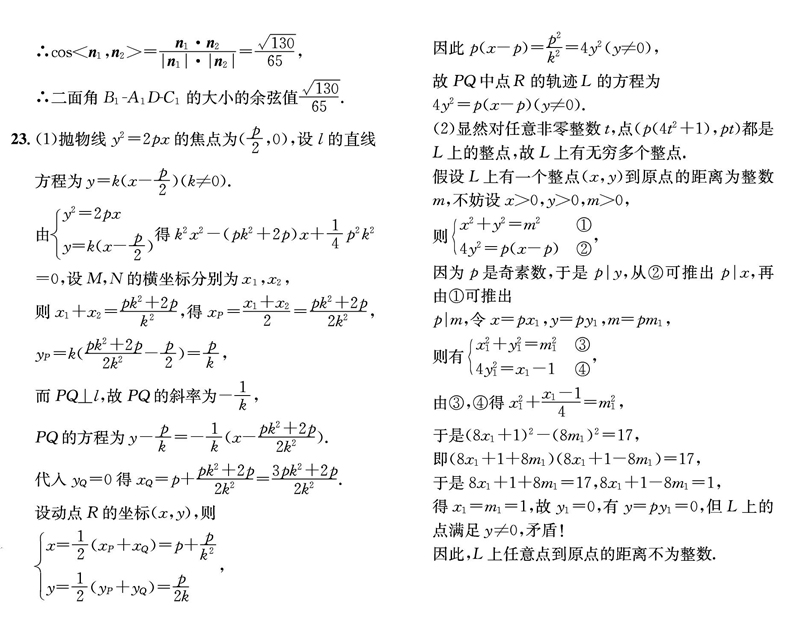 ∴cos<n₁,n₂>=n₁·n₂/(|n₁|·|n₂|)=√130/65,
∴二面角 B₁-A₁D-C₁ 的大小的余弦值√130/65.
23. (1)抛物线 y²=2px 的焦点为(p/2,0),设 l 的直线
方程为 y=k(x-p/2)(k≠0).
由{y²=2px
y=k(x-p/2) 得 k²x²-(pk²+2p)x+1/4 p²k²
=0,设 M,N 的横坐标分别为 x₁,x₂,
则 x₁+x₂=(pk²+2p)/k²,得 xP=(x₁+x₂)/2=(pk²+2p)/2k²,
yP=k((pk²+2p)/2k²-p/2)=p/k,
而 PQ⊥l,故 PQ 的斜率为-1/k,
PQ 的方程为 y-p/k=-1/k(x-(pk²+2p)/2k²).
代入 yQ=0 得 xQ=p+(pk²+2p)/2k²=(3pk²+2p)/2k².
设动点 R 的坐标(x,y),则
{x=1/2(xP+xQ)=p+p/k²
y=1/2(yP+yQ)=p/2k ,
因此 p(x-p)=p²/k²=4y²(y≠0),
故 PQ 中点 R 的轨迹 L 的方程为
4y²=p(x-p)(y≠0).
(2)显然对任意非零整数 t,点(p(4t²+1),pt)都是
L 上的整点,故 L 上有无穷多个整点.
假设 L 上有一个整点(x,y)到原点的距离为整数
m,不妨设 x>0,y>0,m>0,
则{x²+y²=m² ①
4y²=p(x-p) ②,
因为 p 是奇素数,于是 p|y,从②可推出 p|x,再
由①可推出
p|m,令 x=px₁,y=py₁,m=pm₁,
则有{x₁²+y₁²=m₁² ③
4y₁²=x₁-1 ④,
由③,④得 x₁²+(x₁-1)/4=m₁²,
于是(8x₁+1)²-(8m₁)²=17,
即(8x₁+1+8m₁)(8x₁+1-8m₁)=17,
于是 8x₁+1+8m₁=17,8x₁+1-8m₁=1,
得 x₁=m₁=1,故 y₁=0,有 y=py₁=0,但 L 上的
点满足 y≠0,矛盾!
因此,L 上任意点到原点的距离不为整数.